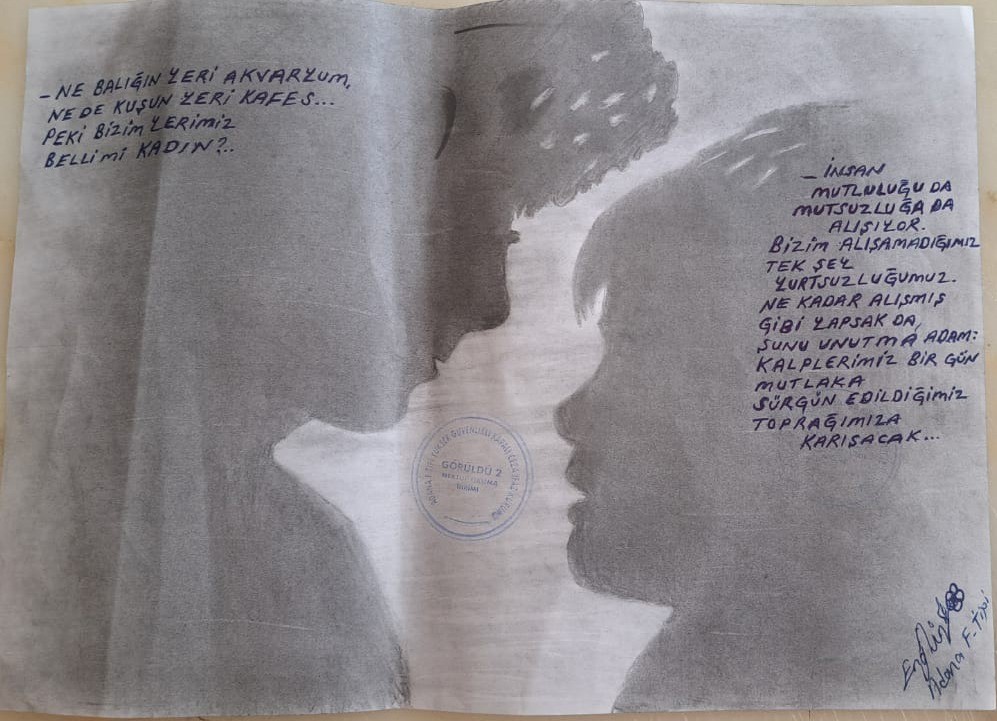 - NE BALIĞIN YERİ AKVARYUM,
NE DE KUŞUN YERİ KAFES...
PEKİ BİZİM YERİMİZ
BELLİ Mİ KADIN?..
- İNSAN
MUTLULUĞU DA
MUTSUZLUĞA DA
ALIŞIYOR.
BİZİM ALIŞAMADIĞIMIZ
TEK ŞEY
YURTSUZLUĞUMUZ.
NE KADAR ALIŞMIŞ
GİBİ YAPSAK DA,
ŞUNU UNUTMA ADAM:
KALPLERİMİZ BİR GÜN
MUTLAKA
SÜRGÜN EDİLDİĞİMİZ
TOPRAĞIMIZA
KARIŞACAK...
YÜKSEK GÜVENLİKLİ KAPALI CEZA İNFAZ KURUMU
GÖRÜLDÜ 2
MEKTUP OKUMA
BİRİMİ
Adana F-Tipi